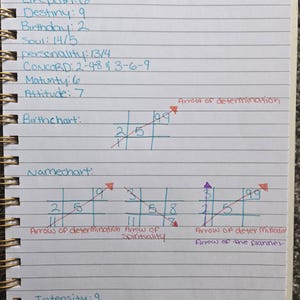 Destiny: 9
Birthday: 2
Soul: 14/5
personality: 13/4
CONCORD: 2-4-8 & 3-6-9
Maturity: 6
Attitude: 7
Arrow of determination
Birthchart:
99
2 5
1
Namechart:
9 3 99
2 5 5 8 2 5
11 11 1
Arrow of determination Arrow of Spirituality Arrow of determination
Arrow of the planner
Intensity: 9